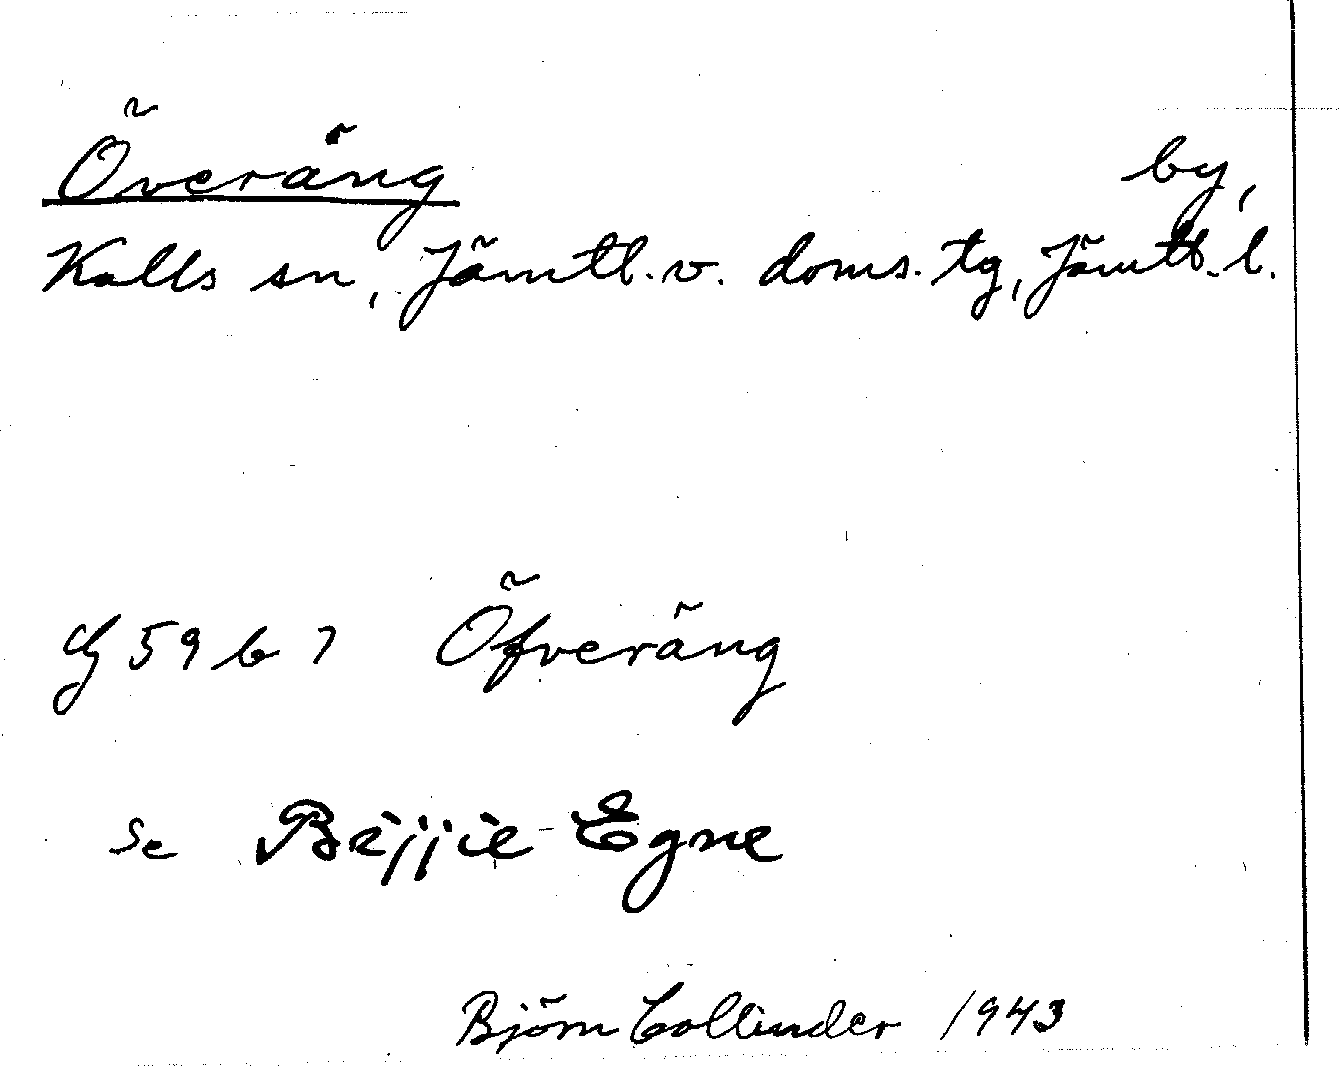 Överäng by,
Kalls sn, Jämtl. v. doms. tg, Jämtl. l.
59 b 7 Öfveräng
se Bäjjie-Egne
Björn Collinder 1943